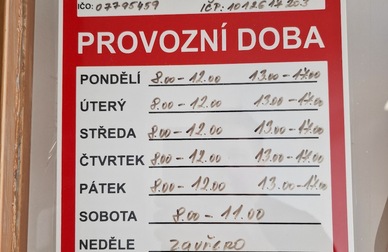 IČO: 07795459 IČP: 1012617203
PROVOZNÍ DOBA
PONDĚLÍ 8.00-12.00 13.00-17.00
ÚTERÝ 8.00-12.00 13.00-17.00
STŘEDA 8.00-12.00 13.00-17.00
ČTVRTEK 8.00-12.00 13.00-17.00
PÁTEK 8.00-12.00 13.00-17.00
SOBOTA 8.00-11.00
NEDĚLE ZAVŘENO